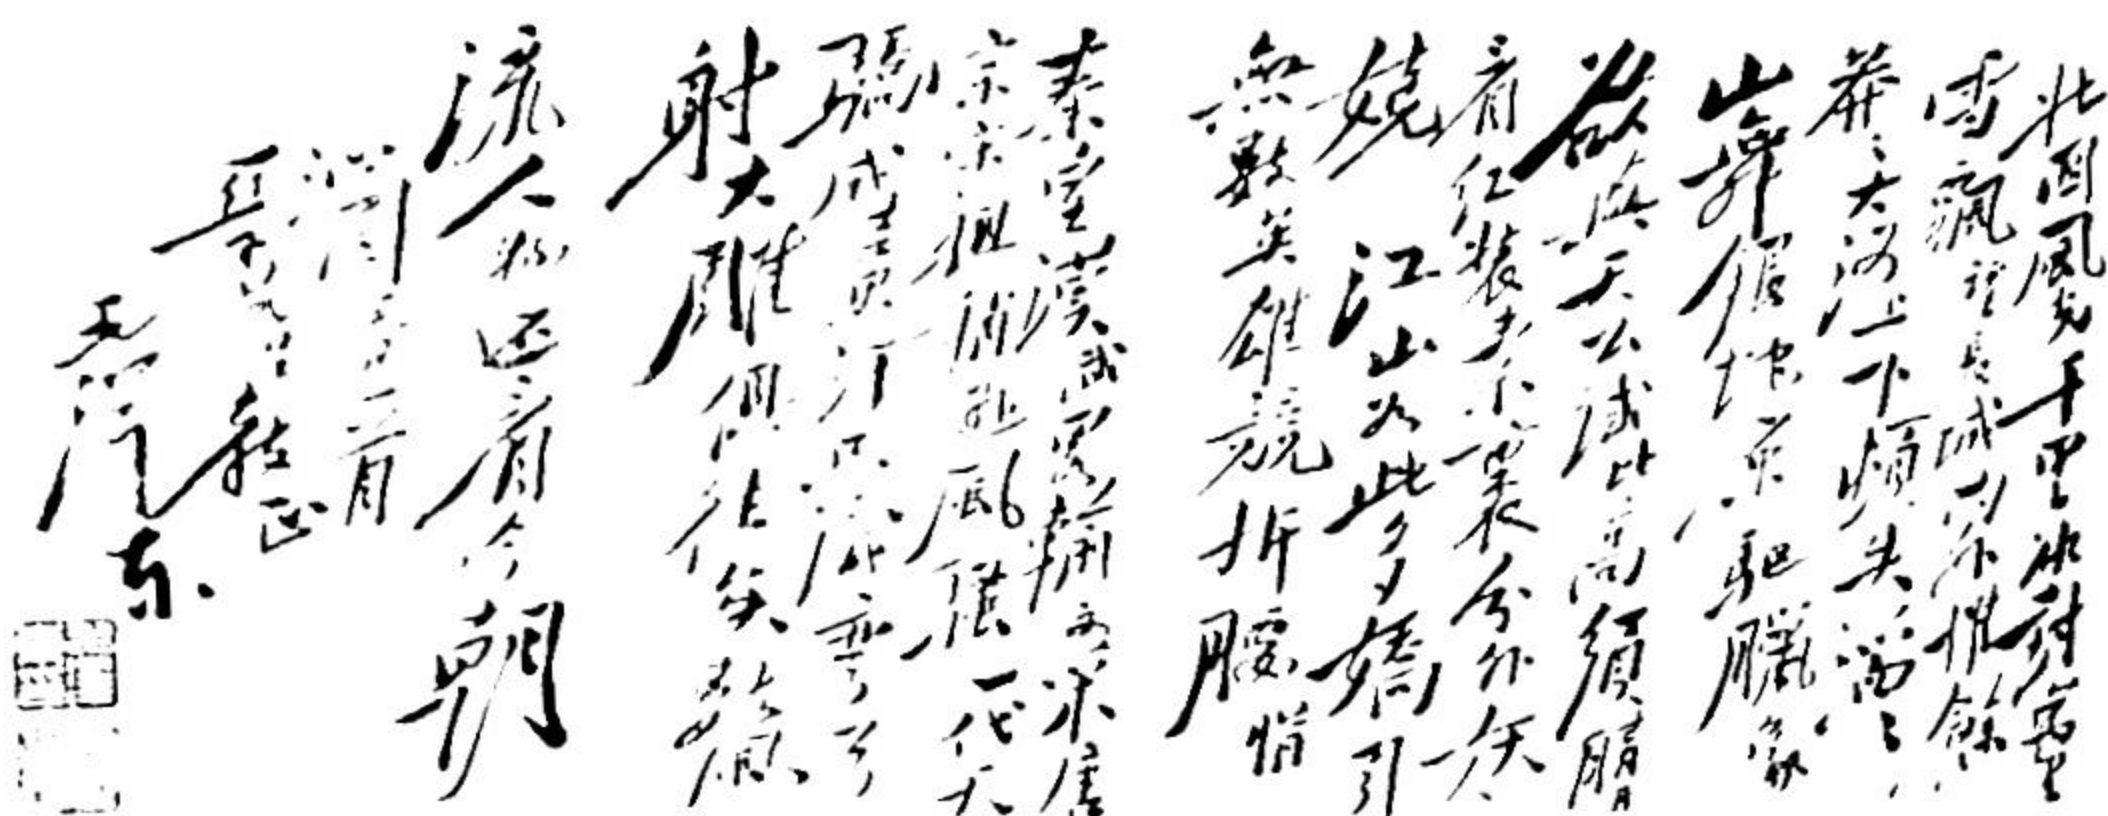 北國風光千里冰封萬里
雪飄望長城内外惟餘
莽々大河上下頓失滔々
山舞銀蛇原驅臘象
欲與天公試比高須晴日
看紅裝素裹分外妖
嬈江山如此多嬌引
無數英雄競折腰惜
秦皇漢武略輸文采唐
宗宋祖稍遜風騷一代天
驕成吉思汗只識彎弓
射大雕俱往矣數風
流人物還看今朝
亞子先生教正
毛澤东